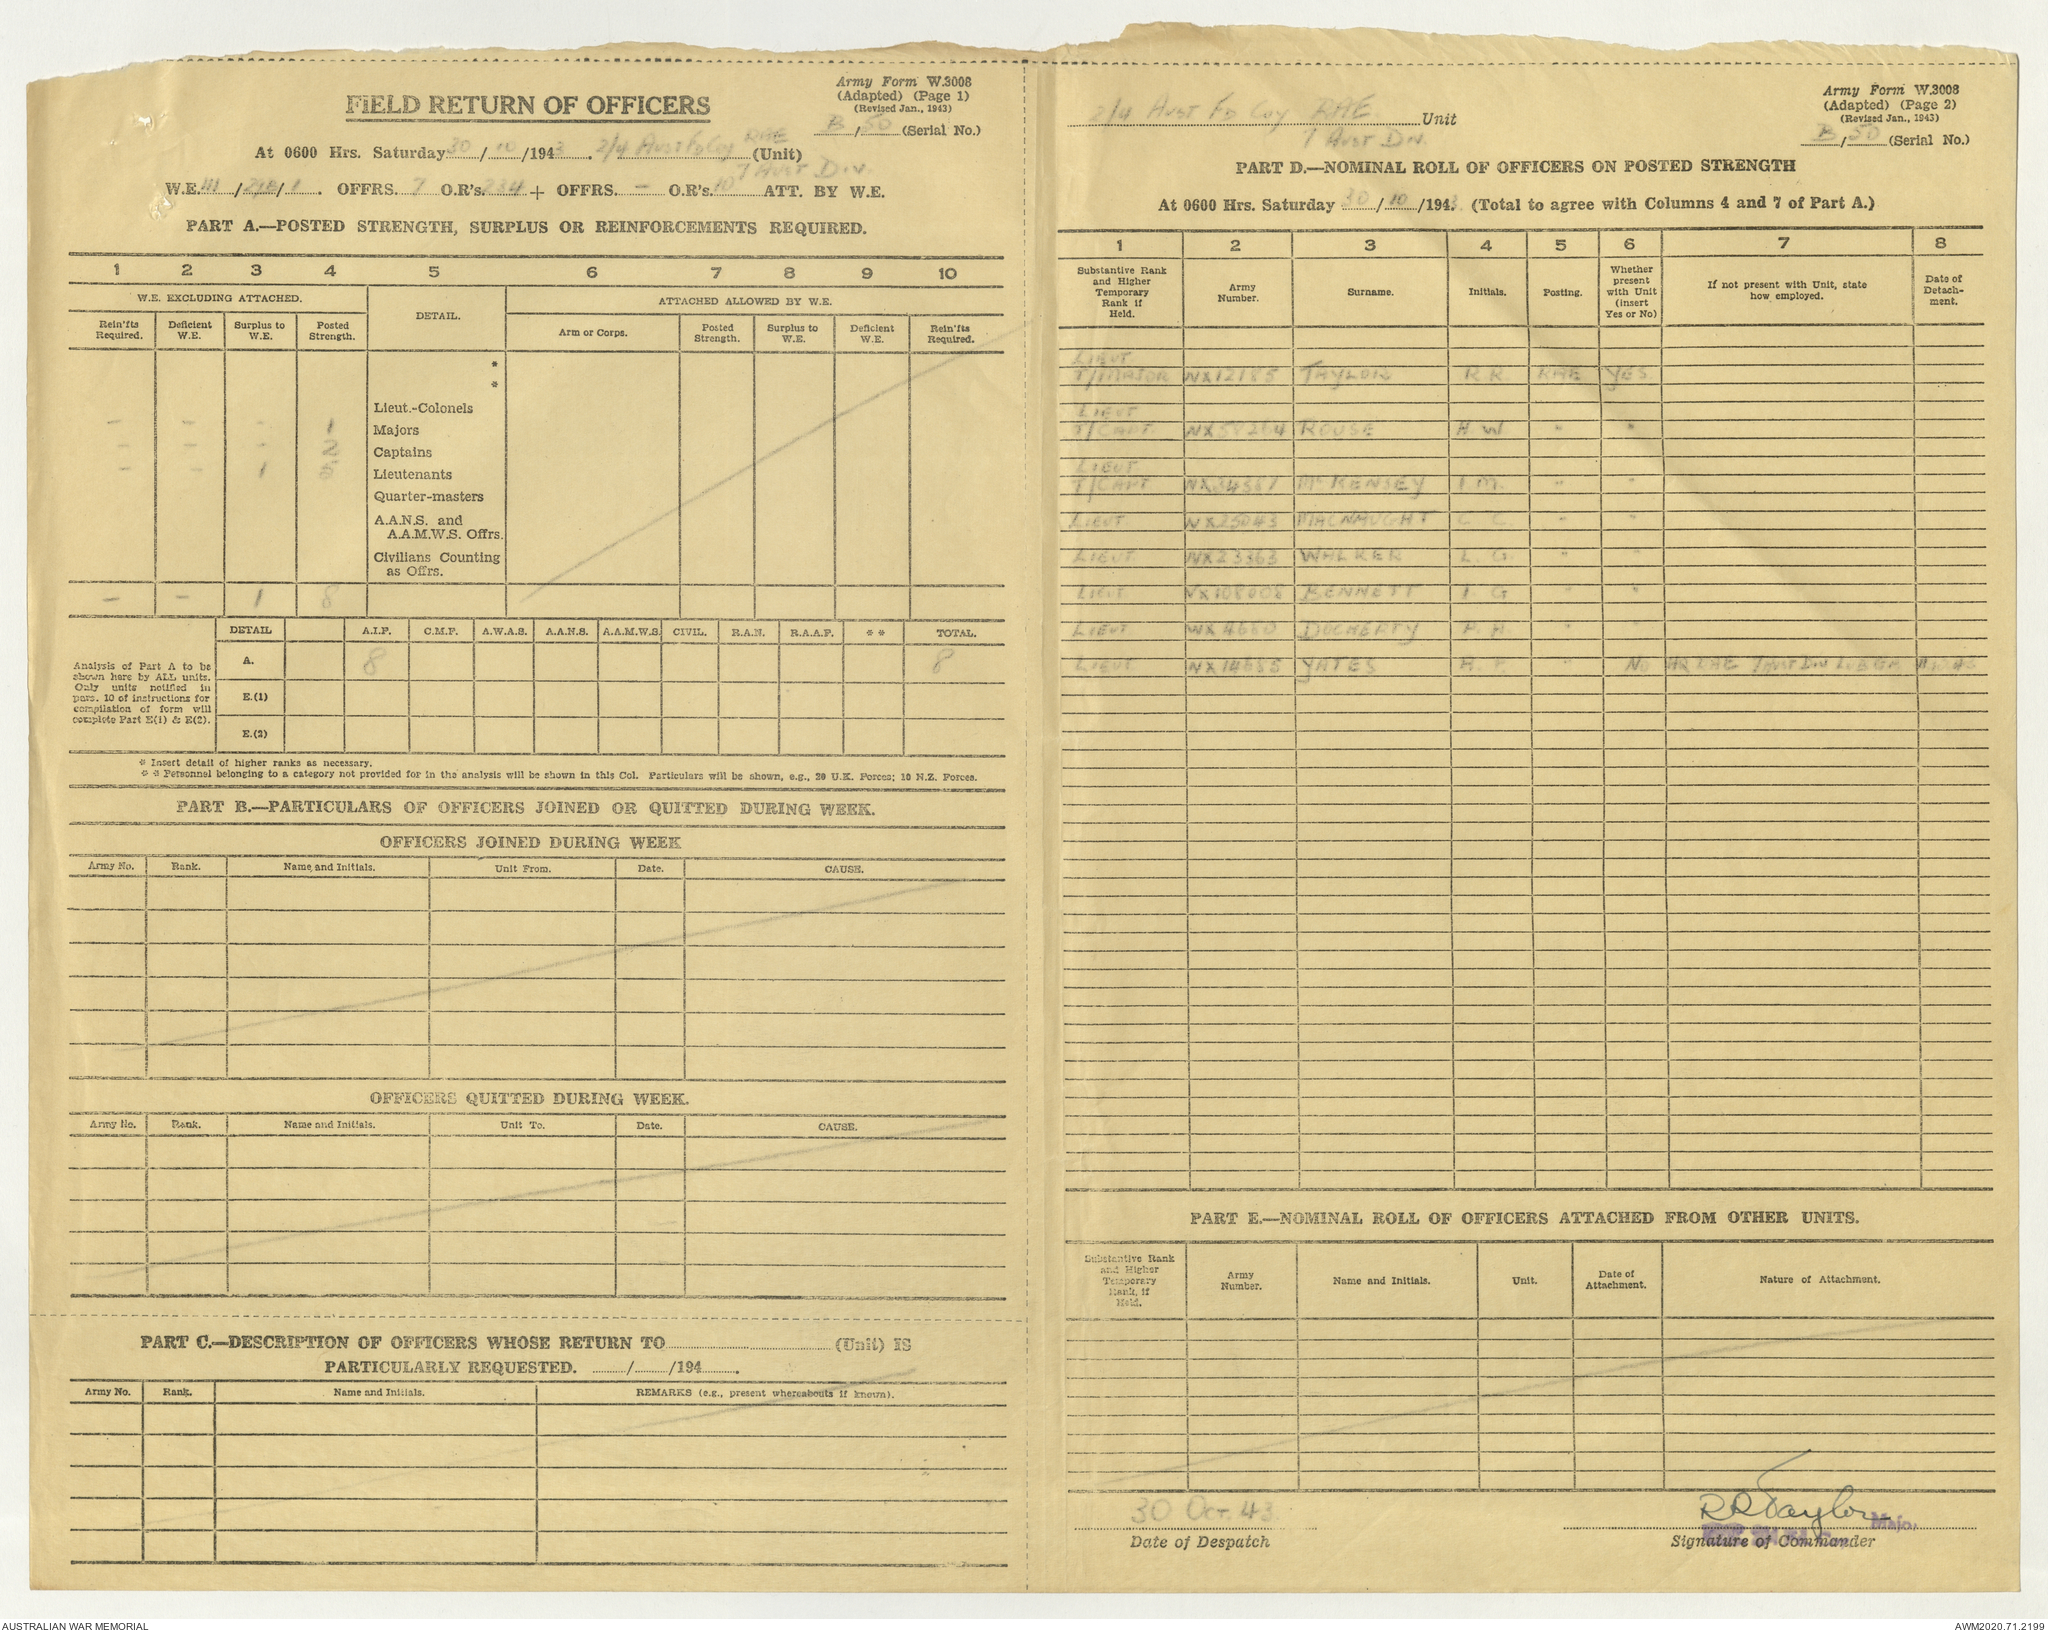 Army Form W.3008
(Adapted) (Page 1)
(Revised Jan., 1943)
FIELD RETURN OF OFFICERS
B/50 (Serial No.)
At 0600 Hrs. Saturday 30/10/1943. 2/4 Aust Fd Coy RAE (Unit)
7 Aust Div.
W.E. III/ /1. OFFRS. 7 O.R's. 234 + OFFRS. - O.R's. 10 ATT. BY W.E.
PART A.—POSTED STRENGTH, SURPLUS OR REINFORCEMENTS REQUIRED.
1 2 3 4 5 6 7 8 9 10
W.E. EXCLUDING ATTACHED. DETAIL. ATTACHED ALLOWED BY W.E.
Rein'fts Required. Deficient W.E. Surplus to W.E. Posted Strength. Arm or Corps. Posted Strength. Surplus to W.E. Deficient W.E. Rein'fts Required.
*
*
Lieut.-Colonels
- - - 1 Majors
- - - 2 Captains
- - 1 5 Lieutenants
Quarter-masters
A.A.N.S. and
A.A.M.W.S. Offrs.
Civilians Counting
as Offrs.
- - 1 8
DETAIL A.I.F. C.M.F. A.W.A.S. A.A.N.S. A.A.M.W.S. CIVIL. R.A.N. R.A.A.F. ** TOTAL.
Analysis of Part A to be
shown here by ALL units.
Only units notified in
para. 10 of instructions for
compilation of form will
complete Part E(1) & E(2).
A. 8 8
E.(1)
E.(2)
* Insert detail of higher ranks as necessary.
** Personnel belonging to a category not provided for in the analysis will be shown in this Col. Particulars will be shown, e.g., 20 U.K. Forces; 10 N.Z. Forces.
PART B.—PARTICULARS OF OFFICERS JOINED OR QUITTED DURING WEEK.
OFFICERS JOINED DURING WEEK
Army No. Rank. Name and Initials. Unit From. Date. CAUSE.
OFFICERS QUITTED DURING WEEK.
Army No. Rank. Name and Initials. Unit To. Date. CAUSE.
PART C.—DESCRIPTION OF OFFICERS WHOSE RETURN TO (Unit) IS
PARTICULARLY REQUESTED. / /194 .
Army No. Rank. Name and Initials. REMARKS (e.g., present whereabouts if known).
Army Form W.3008
(Adapted) (Page 2)
(Revised Jan., 1943)
2/4 Aust Fd Coy RAE Unit
7 Aust Div.
B/50 (Serial No.)
PART D.—NOMINAL ROLL OF OFFICERS ON POSTED STRENGTH
At 0600 Hrs. Saturday 30/10/1943. (Total to agree with Columns 4 and 7 of Part A.)
1 2 3 4 5 6 7 8
Substantive Rank and Higher Temporary Rank if Held. Army Number. Surname. Initials. Posting. Whether present with Unit (insert Yes or No) If not present with Unit, state how employed. Date of Detach-ment.
LIEUT
T/MAJOR NX12185 TAYLOR R.R. RAE YES
LIEUT
T/CAPT. ROUSE H.W. " "
LIEUT
T/CAPT. NX34581 McKENSEY I.M. " "
LIEUT NX25043 MACNAUGHT C.C. " "
LIEUT NX23363 WALKER L.G. " "
LIEUT VX108008 BENNETT I.G " "
LIEUT WX4660 DOCHERTY P.A. "
LIEUT NX14685 YATES H.F. " NO HQ RAE 7 AUST DIV
PART E.—NOMINAL ROLL OF OFFICERS ATTACHED FROM OTHER UNITS.
Substantive Rank and Higher Temporary Rank, if Held. Army Number. Name and Initials. Unit. Date of Attachment. Nature of Attachment.
30 Oct. 43
Date of Despatch
RRTaylor Major
Signature of Commander
AUSTRALIAN WAR MEMORIAL
AWM2020.71.2199